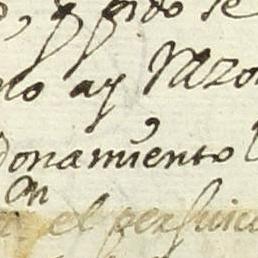 y pido se
no ay Razo
donamiento
on
el perjuici